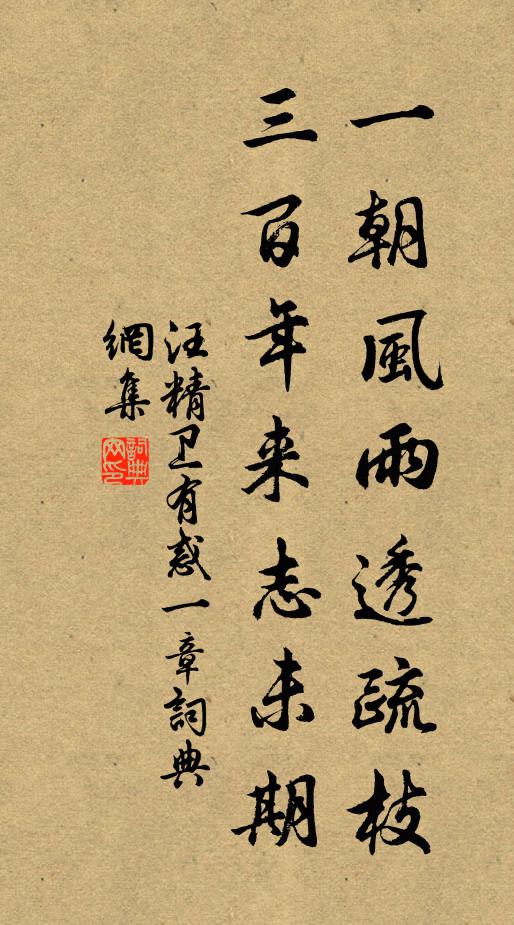 一朝風雨透疏枝
三百年来志未期
汪精卫有惑一章詞典
網集
詞典
网印